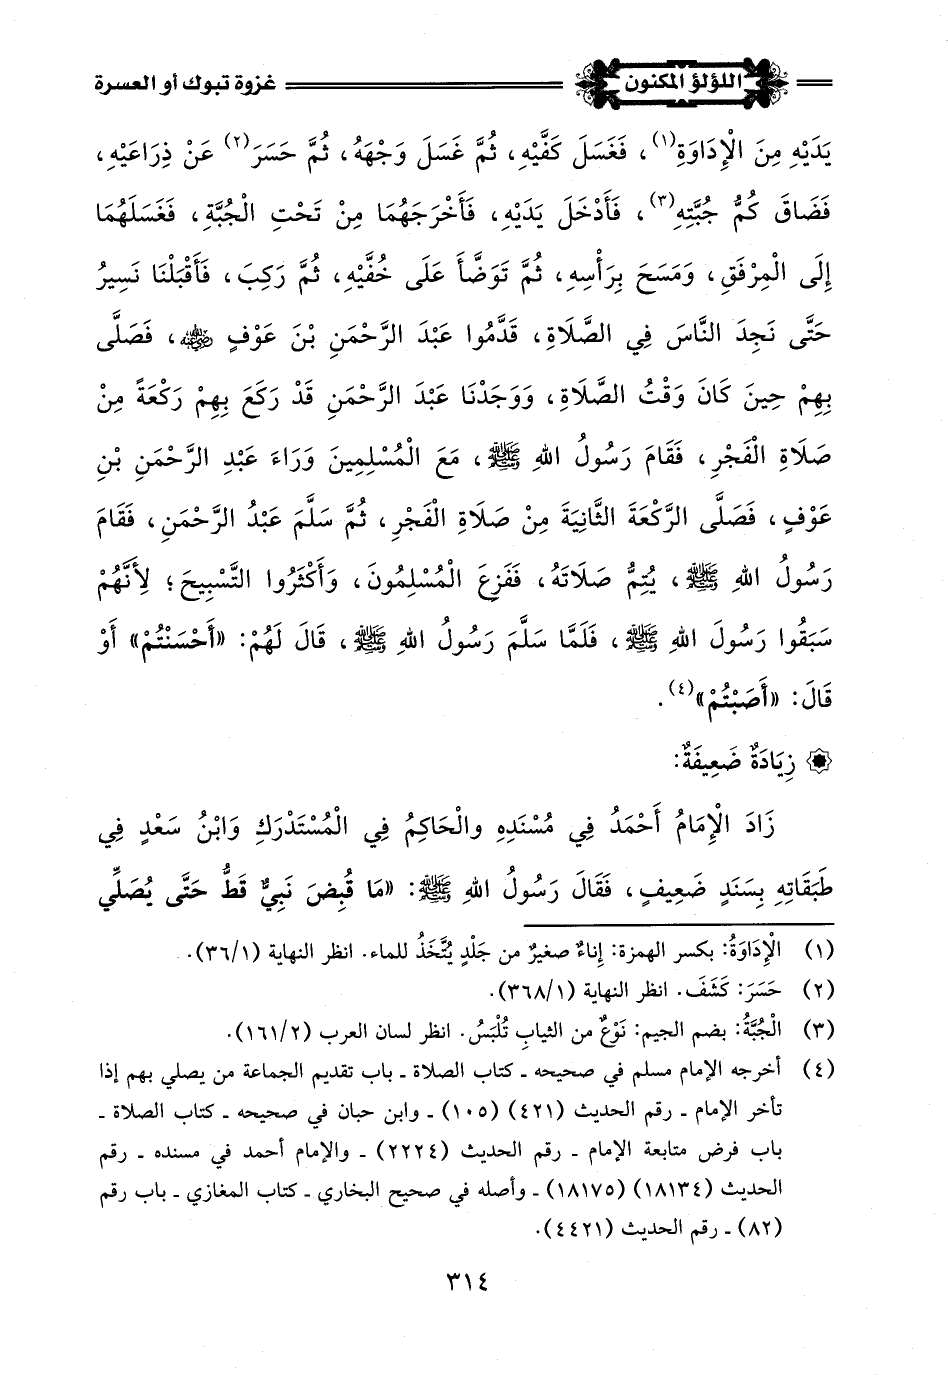 اللؤلؤ المكنون
غزوة تبوك أو العسرة
يَدَيْهِ مِنَ الْإِدَاوَةِ(١)، فَغَسَلَ كَفَّيْهِ، ثُمَّ غَسَلَ وَجْهَهُ، ثُمَّ حَسَرَ(٢) عَنْ ذِرَاعَيْهِ،
فَضَاقَ كُمُّ جُبَّتِهِ(٣)، فَأَدْخَلَ يَدَيْهِ، فَأَخْرَجَهُمَا مِنْ تَحْتِ الْجُبَّةِ، فَغَسَلَهُمَا
إِلَى الْمِرْفَقِ، وَمَسَحَ بِرَأْسِهِ، ثُمَّ تَوَضَّأَ عَلَى خُفَّيْهِ، ثُمَّ رَكِبَ، فَأَقْبَلْنَا نَسِيرُ
حَتَّى نَجِدَ النَّاسَ فِي الصَّلَاةِ، قَدَّمُوا عَبْدَ الرَّحْمَنِ بْنَ عَوْفٍ رضي الله عنه، فَصَلَّى
بِهِمْ حِينَ كَانَ وَقْتُ الصَّلَاةِ، وَوَجَدْنَا عَبْدَ الرَّحْمَنِ قَدْ رَكَعَ بِهِمْ رَكْعَةً مِنْ
صَلَاةِ الْفَجْرِ، فَقَامَ رَسُولُ اللهِ ﷺ، مَعَ الْمُسْلِمِينَ وَرَاءَ عَبْدِ الرَّحْمَنِ بْنِ
عَوْفٍ، فَصَلَّى الرَّكْعَةَ الثَّانِيَةَ مِنْ صَلَاةِ الْفَجْرِ، ثُمَّ سَلَّمَ عَبْدُ الرَّحْمَنِ، فَقَامَ
رَسُولُ اللهِ ﷺ، يُتِمُّ صَلَاتَهُ، فَفَزِعَ الْمُسْلِمُونَ، وَأَكْثَرُوا التَّسْبِيحَ؛ لِأَنَّهُمْ
سَبَقُوا رَسُولَ اللهِ ﷺ، فَلَمَّا سَلَّمَ رَسُولُ اللهِ ﷺ، قَالَ لَهُمْ: «أَحْسَنْتُمْ» أَوْ
قَالَ: «أَصَبْتُمْ»(٤).
زِيَادَةٌ ضَعِيفَةٌ:
زَادَ الْإِمَامُ أَحْمَدُ فِي مُسْنَدِهِ والْحَاكِمُ فِي الْمُسْتَدْرَكِ وَابْنُ سَعْدٍ فِي
طَبَقَاتِهِ بِسَنَدٍ ضَعِيفٍ، فَقَالَ رَسُولُ اللهِ ﷺ: «مَا قُبِضَ نَبِيٌّ قَطُّ حَتَّى يُصَلِّي
(١) الْإِدَاوَةُ: بكسر الهمزة: إِناءٌ صغيرٌ من جَلْدٍ يُتَّخَذُ للماء. انظر النهاية (٣٦/١).
(٢) حَسَرَ: كَشَفَ. انظر النهاية (٣٦٨/١).
(٣) الْجُبَّةُ: بضم الجيم: نَوْعٌ من الثيابِ تُلْبَسُ. انظر لسان العرب (١٦١/٢).
(٤) أخرجه الإمام مسلم في صحيحه ـ كتاب الصلاة ـ باب تقديم الجماعة من يصلي بهم إذا
تأخر الإمام ـ رقم الحديث (٤٢١) (١٠٥) ـ وابن حبان في صحيحه ـ كتاب الصلاة ـ
باب فرض متابعة الإمام ـ رقم الحديث (٢٢٢٤) ـ والإمام أحمد في مسنده ـ رقم
الحديث (١٨١٣٤) (١٨١٧٥) ـ وأصله في صحيح البخاري ـ كتاب المغازي ـ باب رقم
(٨٢) ـ رقم الحديث (٤٤٢١).
٣١٤